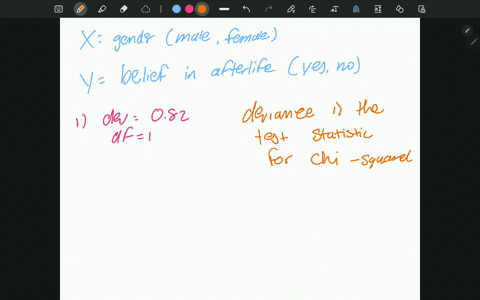 X = gender (male, female)
Y = belief in afterlife (yes, no)
1) dev = 0.82
df = 1
deviance is the
test statistic
for chi-squared